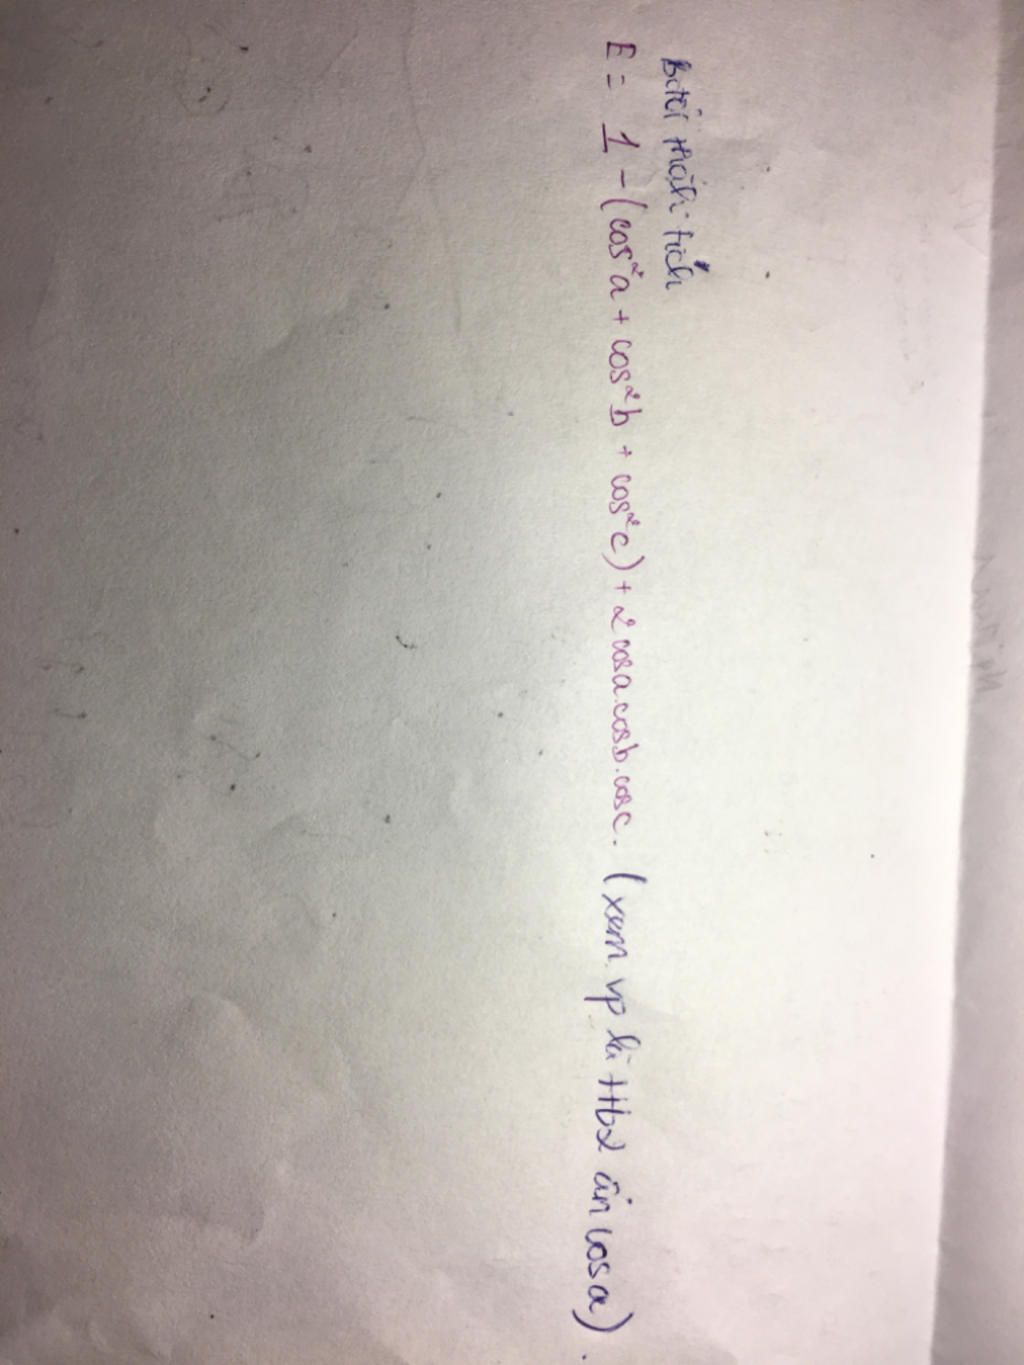 Biến thành tích
E = 1 - (cos²a + cos²b + cos²c) + 2cosa.cosb.cosc. (xem vp là ttb2 ẩn cosa).